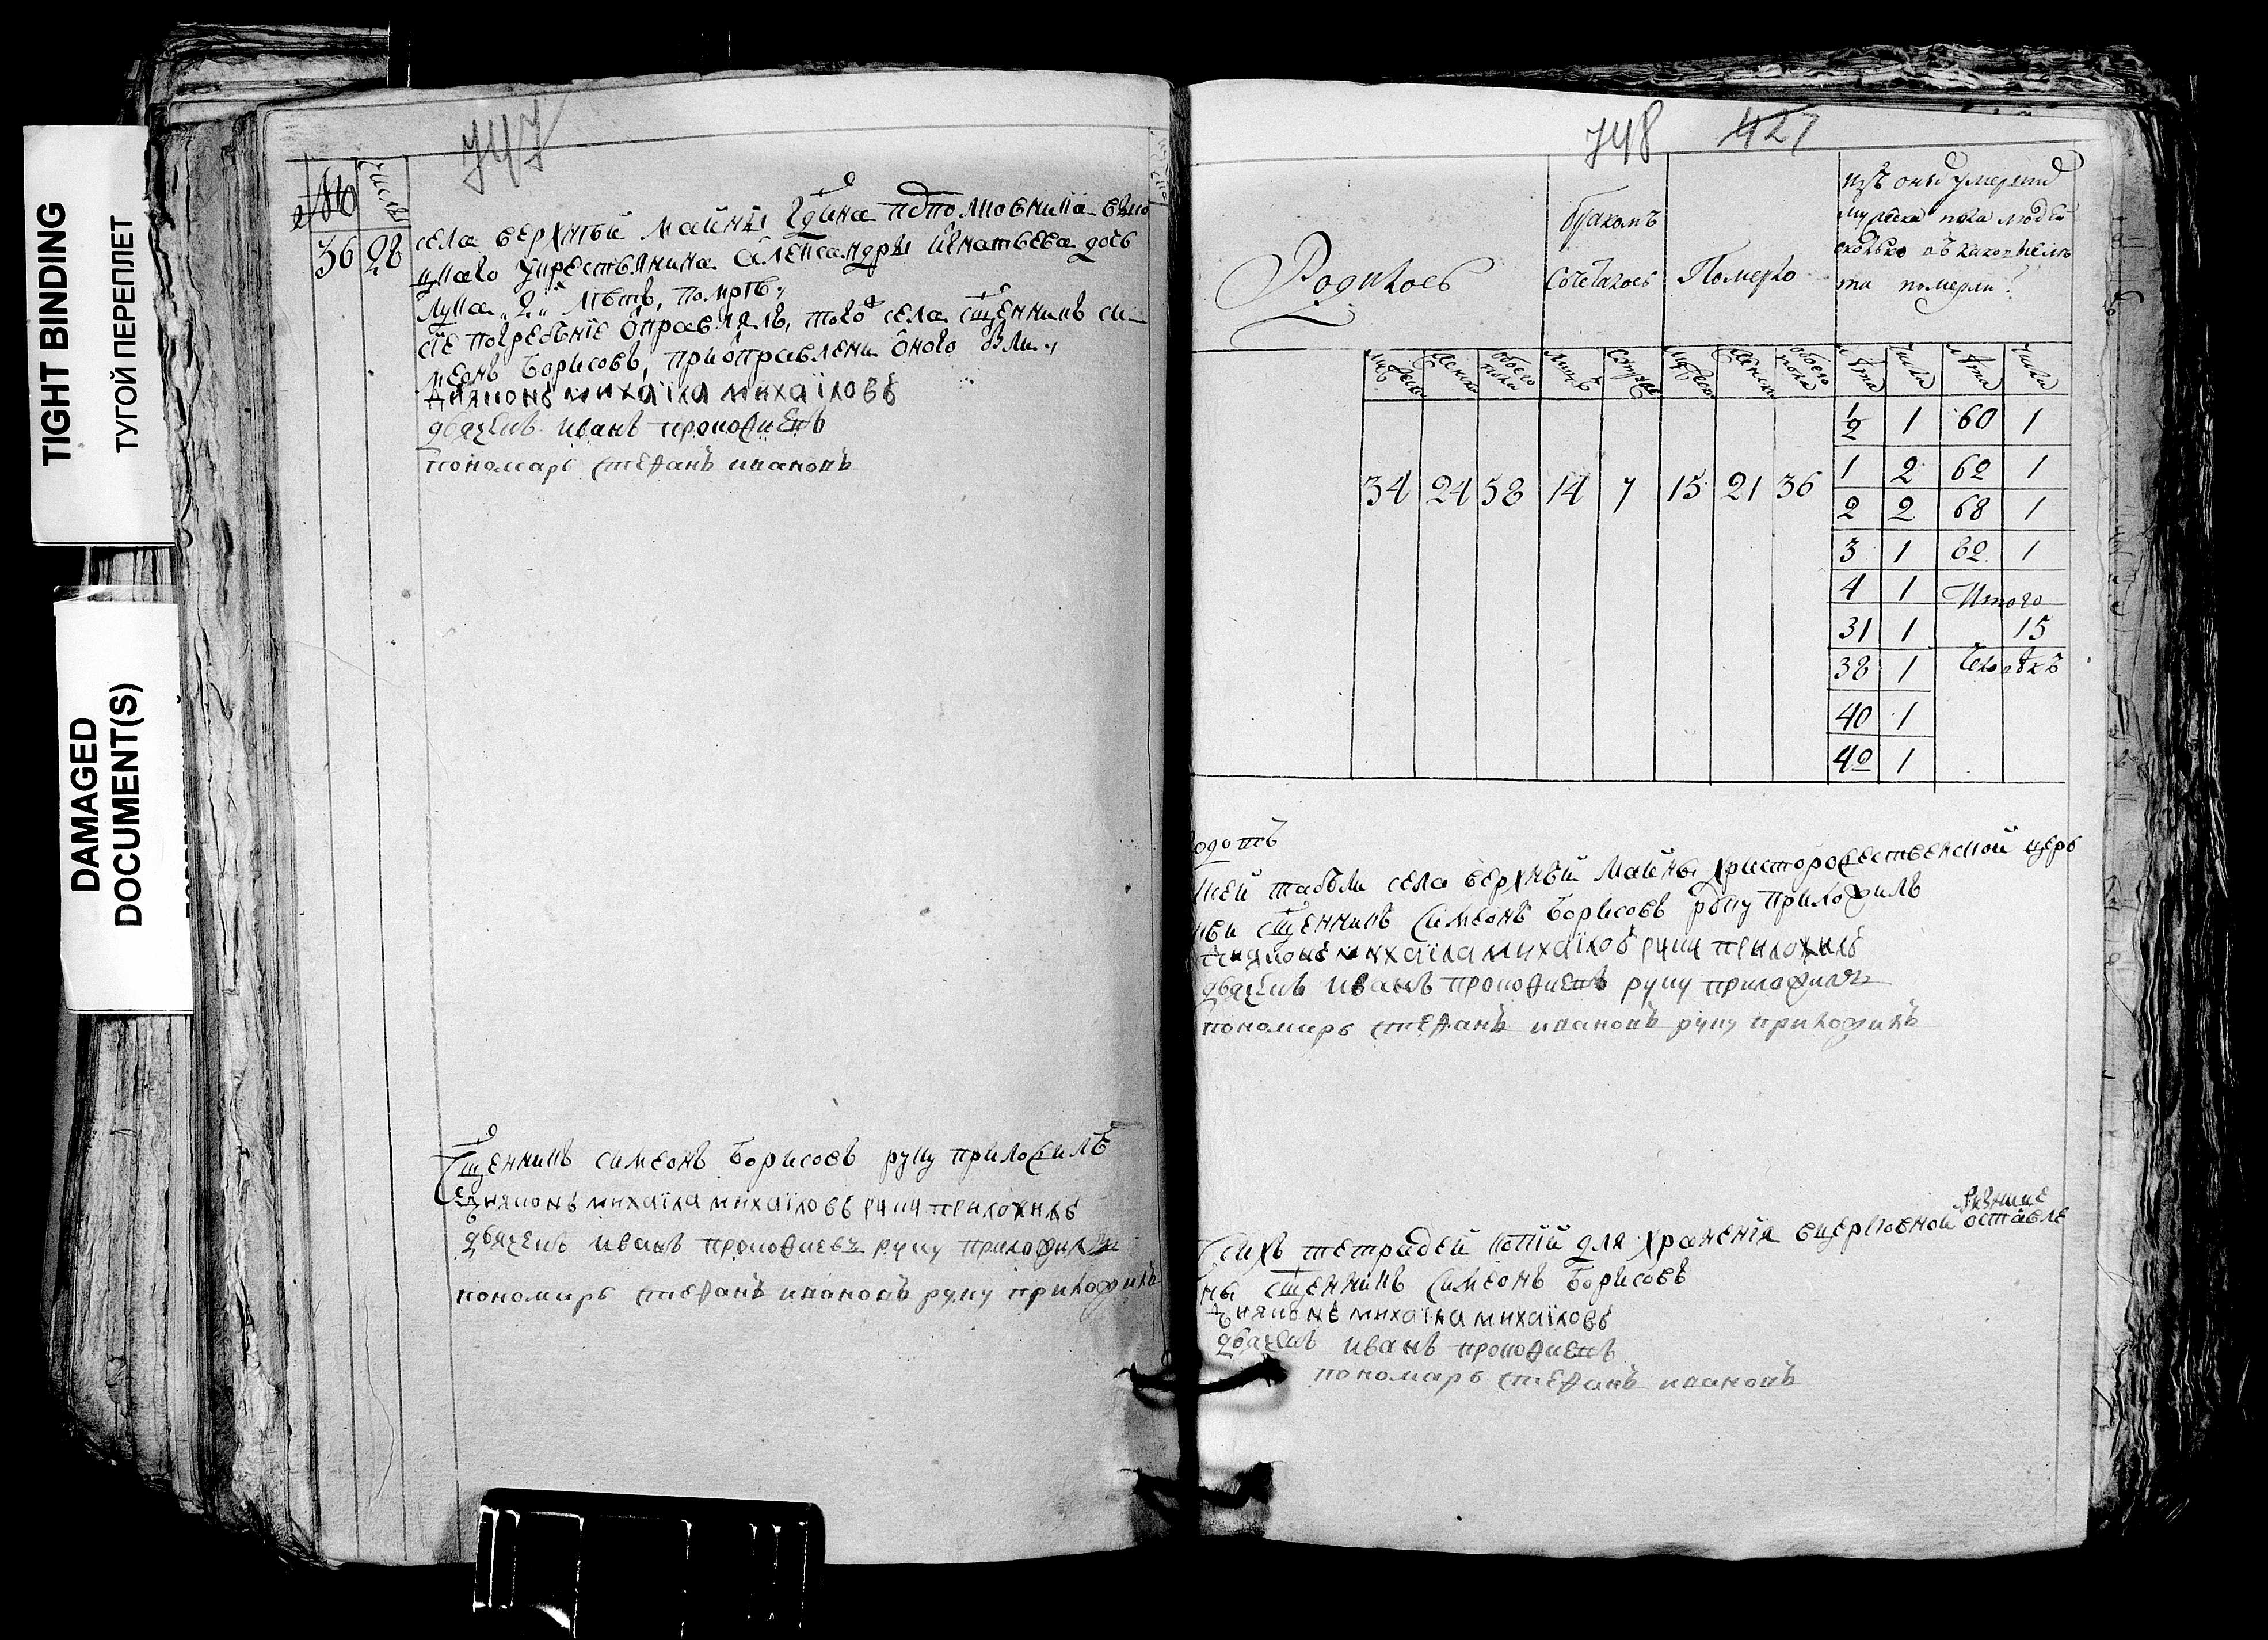 TIGHT BINDING
ТУГОЙ ПЕРЕПЛЕТ
DAMAGED
DOCUMENT(S)
747
№ числа
36 28
села верхнѣй Майны
крестьянина Александры Игнатьева дочь
2 лѣтъ, помрѣ
сїе погребенїе ѿправлялъ, того села сщенникъ Си
меонъ Борисовъ, приѿправлени ѻного были
дияконъ михаіла михаіловъ
дьячекъ иванъ прокофиевъ
пономарь стеѳанъ ивановъ
сщенникъ симеонъ Борисовъ руку приложилъ
дияконъ михаіла михаіловъ руку приложилъ
дьячекъ иванъ прокофиевъ руку приложилъ
пономарь стеѳанъ ивановъ руку приложилъ
748 427
Родилось
бракомъ
сочеталось
Померло
изъ оныхъ умерших
мужеска пола людей
сколько въ
та померли
мужеска женска обоего пола лицъ мужеска женска обоего пола лѣта числа лѣта числа
34 24 58 14 7 15 21 36
1/2 1 60 1
1 2 62 1
2 2 68 1
3 1 82 1
4 1 Итого
31 1 15
38 1 человѣкъ
40 1
42 1
табѣли села верхнѣй Майны христорождественской церк
сщенникъ Симеонъ Борисовъ руку приложилъ
дияконъ михаіла михаіловъ руку приложилъ
дьячекъ иванъ прокофиевъ руку приложилъ
пономарь стеѳанъ ивановъ руку приложилъ
сихъ тетрадей копїи для храненїя вцерковной ризницѣ оставле
ны сщенникъ Симеонъ Борисовъ
дияконъ михаіла михаіловъ
дьячекъ иванъ прокофиевъ
пономарь стеѳанъ ивановъ